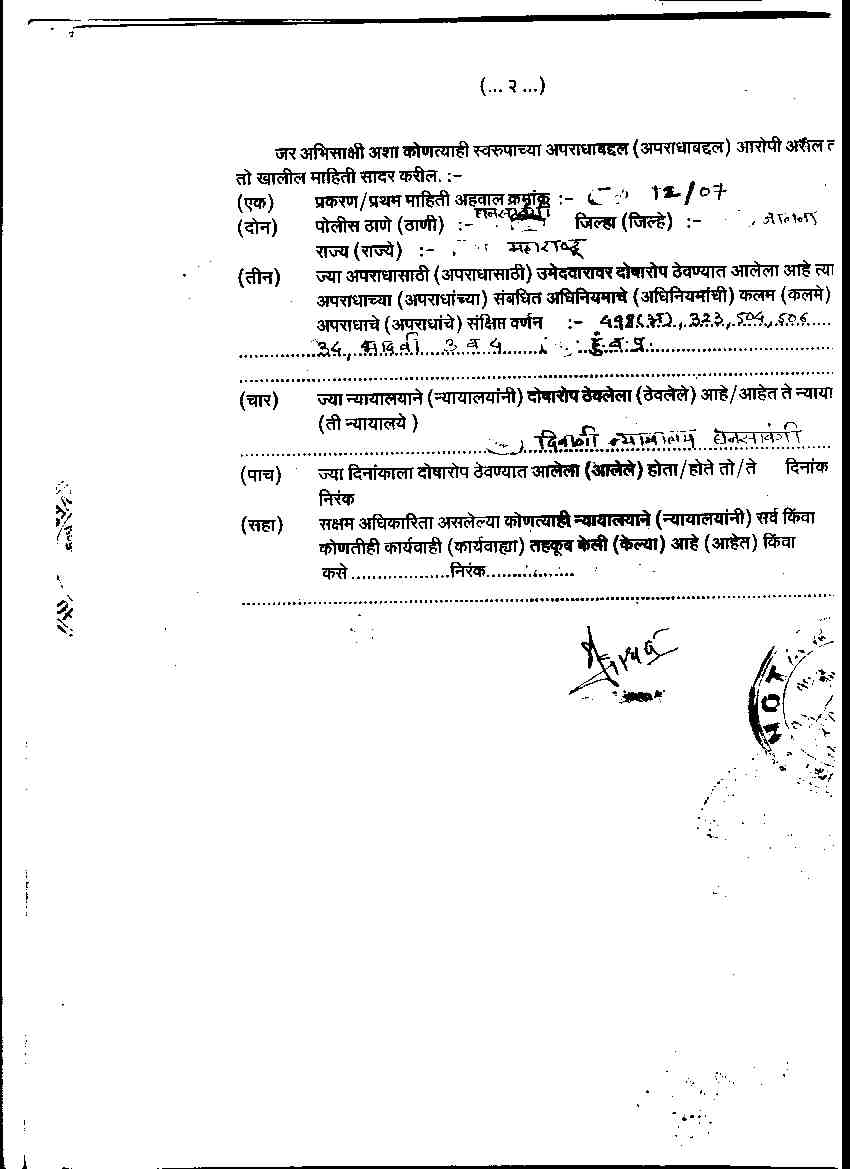 (... २ ...)
जर अभिसाक्षी अशा कोणत्याही स्वरुपाच्या अपराधाबद्दल (अपराधाबद्दल) आरोपी असेल त
तो खालील माहिती सादर करील. :-
(एक) प्रकरण/प्रथम माहिती अहवाल क्रमांक :- 12/07
(दोन) पोलीस ठाणे (ठाणी) :- जिल्हा (जिल्हे) :- जालना
राज्य (राज्ये) :- महाराष्ट्र
(तीन) ज्या अपराधासाठी (अपराधासाठी) उमेदवारावर दोषारोप ठेवण्यात आलेला आहे त्या
अपराधाच्या (अपराधांच्या) संबधित अधिनियमाचे (अधिनियमांची) कलम (कलमे)
अपराधाचे (अपराधांचे) संक्षिप्त वर्णन :- ४९8(अ), ३२३, ५०४, ५०६
३४, भादवी ३ व ४ हुं.ब.प्र.
(चार) ज्या न्यायालयाने (न्यायालयांनी) दोषारोप ठेवलेला (ठेवलेले) आहे/आहेत ते न्याया
(ती न्यायालये )
दिवाणी न्यायालय घनसावंगी
(पाच) ज्या दिनांकाला दोषारोप ठेवण्यात आलेला (आलेले) होता/होते तो/ते दिनांक
निरंक
(सहा) सक्षम अधिकारिता असलेल्या कोणत्याही न्यायालयाने (न्यायालयांनी) सर्व किंवा
कोणतीही कार्यवाही (कार्यवाह्या) तहकूब केली (केल्या) आहे (आहेत) किंवा
कसे ...................निरंक.................
NOT